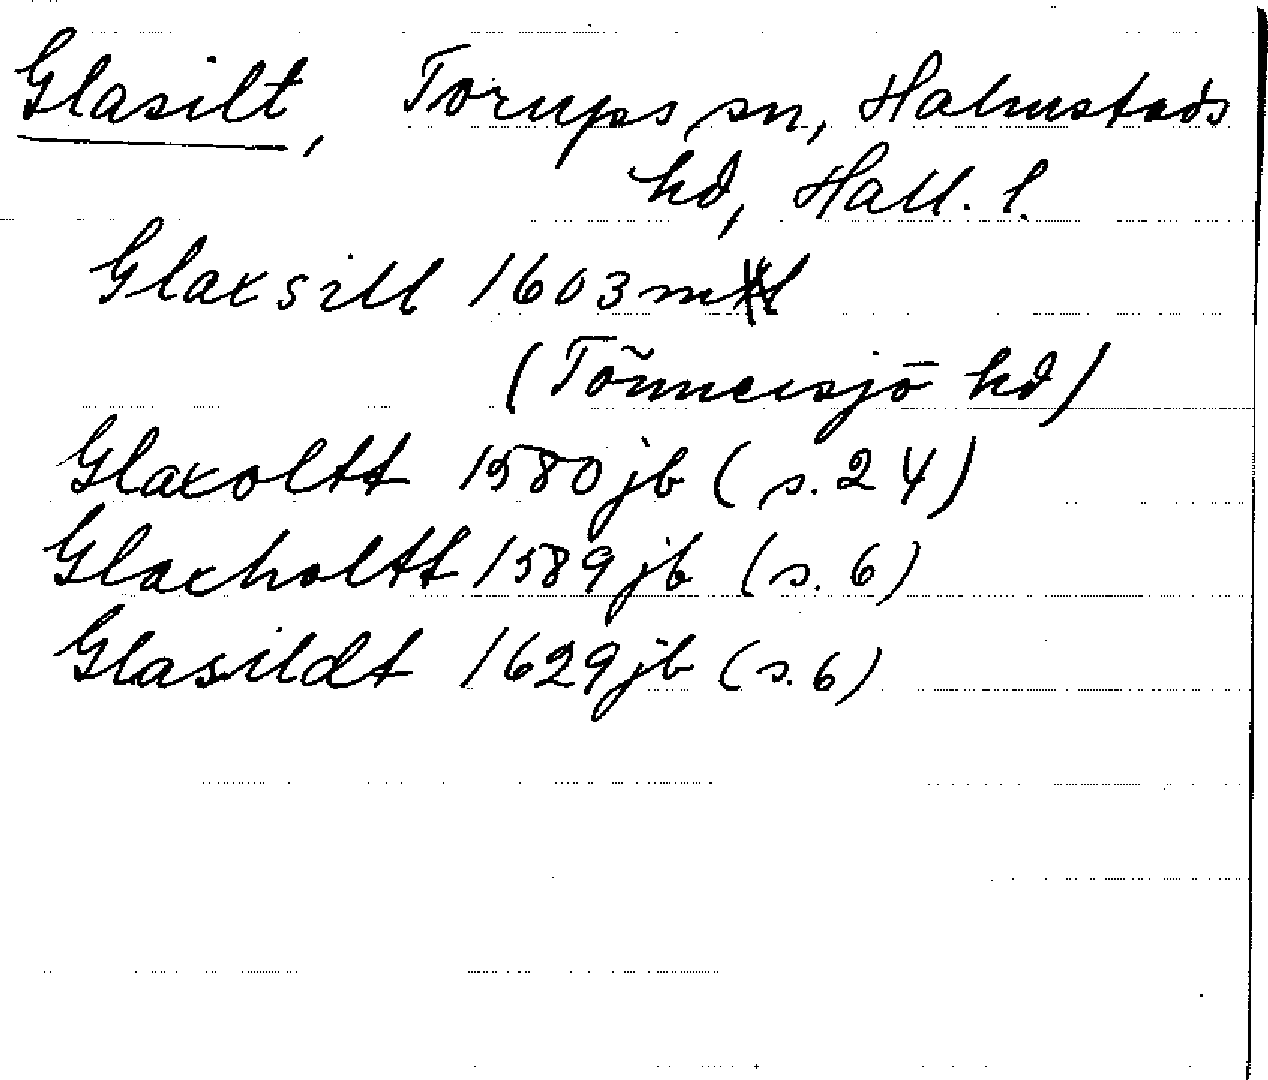 Glasilt, Torups sn, Halmstads
hd, Hall. l.
Glaxsill 1603 ml
(Tönnersjö hd)
Glaxoltt 1580 jb (s. 24)
Glaxholtt 1589 jb (s. 6)
Glasildt 1629 jb (s. 6)